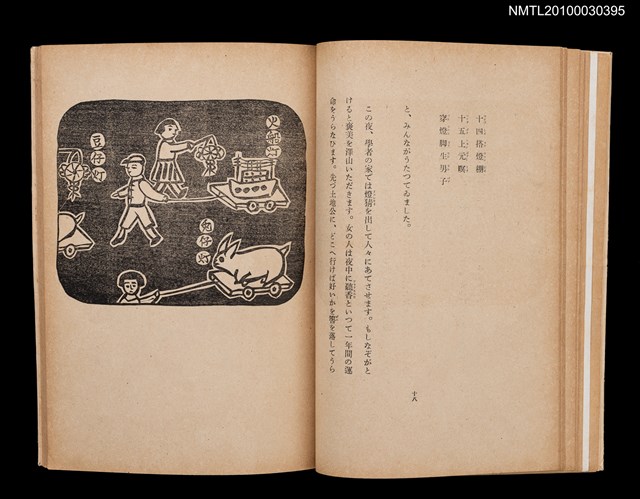 NMTL20100030395
十四搭燈棚
十五上元暝
穿燈脚生男子
と、みんながうたつてゐました。
この夜、學者の家では燈猜を出して人々にあてさせます。もしなぞがと
けると褒美を澤山いただきます。女の人は夜中に聽香といつて一年間の運
命をうらなひます。先づ土地公に、どこへ行けば好いかを筶を落してうら
十八
火船灯
豆仔灯
兎仔灯